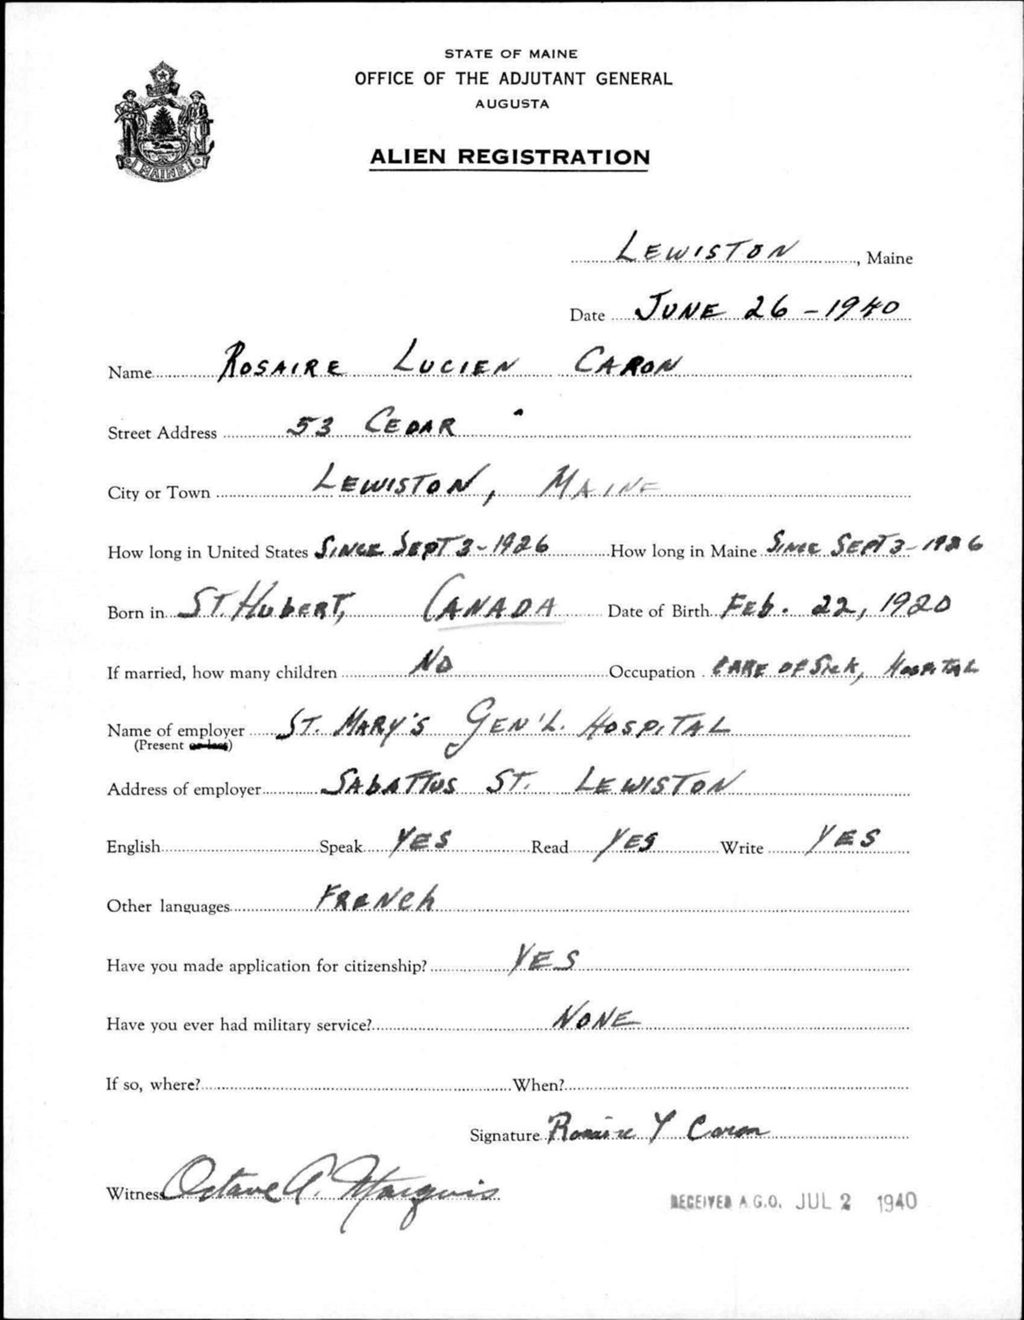 STATE OF MAINE
OFFICE OF THE ADJUTANT GENERAL
AUGUSTA
ALIEN REGISTRATION
MAINE
LEWISTON, Maine
Date JUNE 26-1940
Name ROSAIRE LUCIEN CARON
Street Address 53 CEDAR
City or Town LEWISTON, MAINE
How long in United States SINCE SEPT 3-1926 How long in Maine SINCE SEPT 3-1926
Born in ST HUBERT, CANADA Date of Birth FEB. 22, 1920
If married, how many children NO Occupation CARE OF SICK, HOSPITAL
Name of employer ST. MARY'S GEN'L. HOSPITAL
(Present or last)
Address of employer SABATTUS ST. LEWISTON
English Speak YES Read YES Write YES
Other languages FRENCH
Have you made application for citizenship? YES
Have you ever had military service? NONE
If so, where? When?
Signature Rosaire Y Caron
Witness Octave A. Marquis
RECEIVED A.G.O. JUL 2 1940